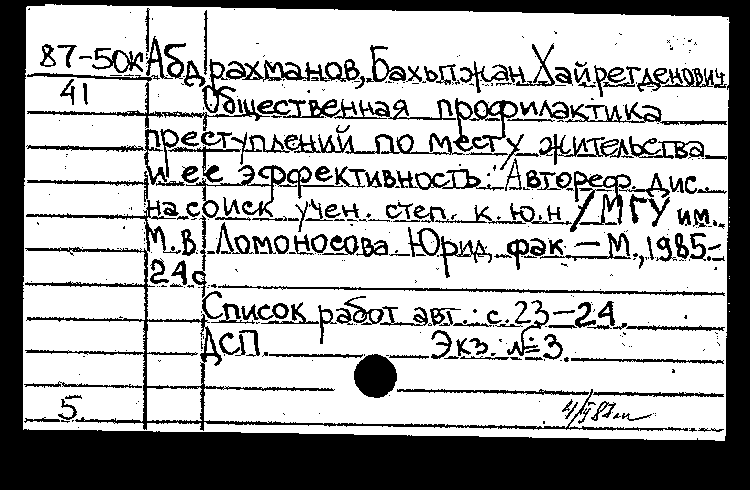 87-50к Абдрахманов, Бахытжан Хайретденович
41 Общественная профилактика
преступлений по месту жительства
и ее эффективность: Автореф. дис.
на соиск учен. степ. к. ю. н. / МГУ им.
М. В. Ломоносова. Юрид. фак. — М., 1985.-
24с
Список работ авт.: с. 23-24.
ДСП. Экз. №3.
5.